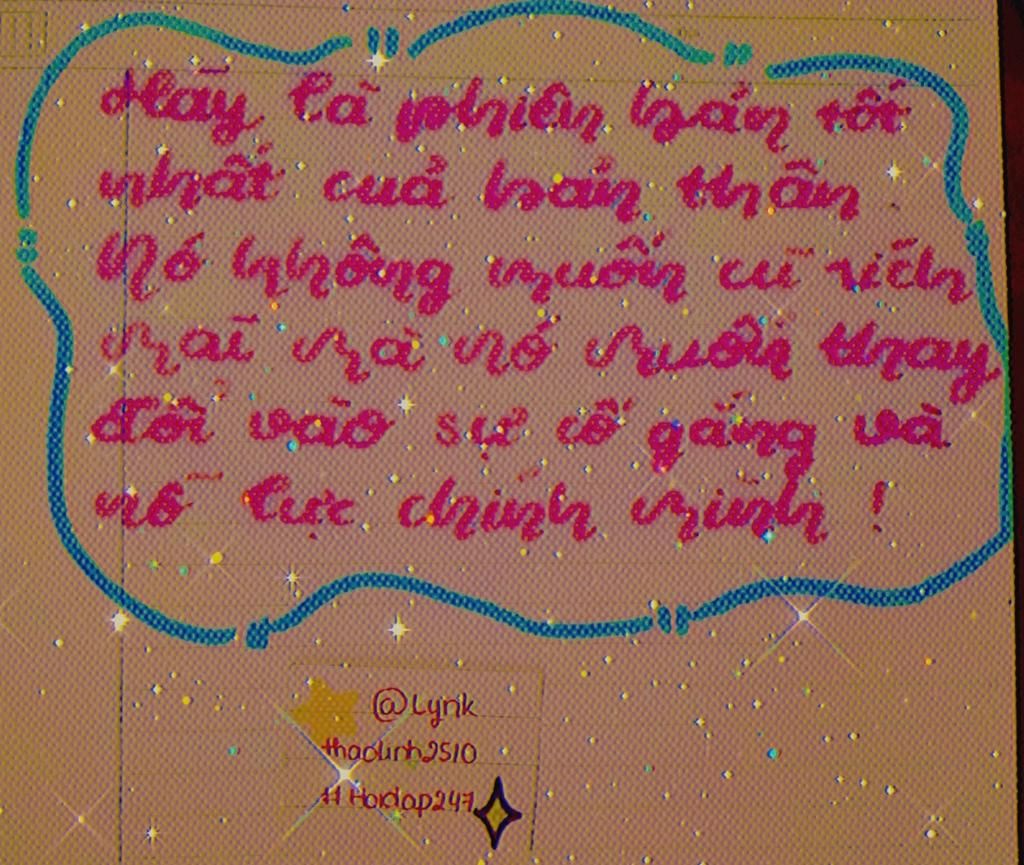 Hãy là phiên bản tốt
nhất của bản thân
Nó không muốn cũ viễn
mãi mà nó muốn thay
đổi vào sự cố gắng và
nỗ lực chính mình !
@Lyrik
thaolinh2510
# Hoidap247